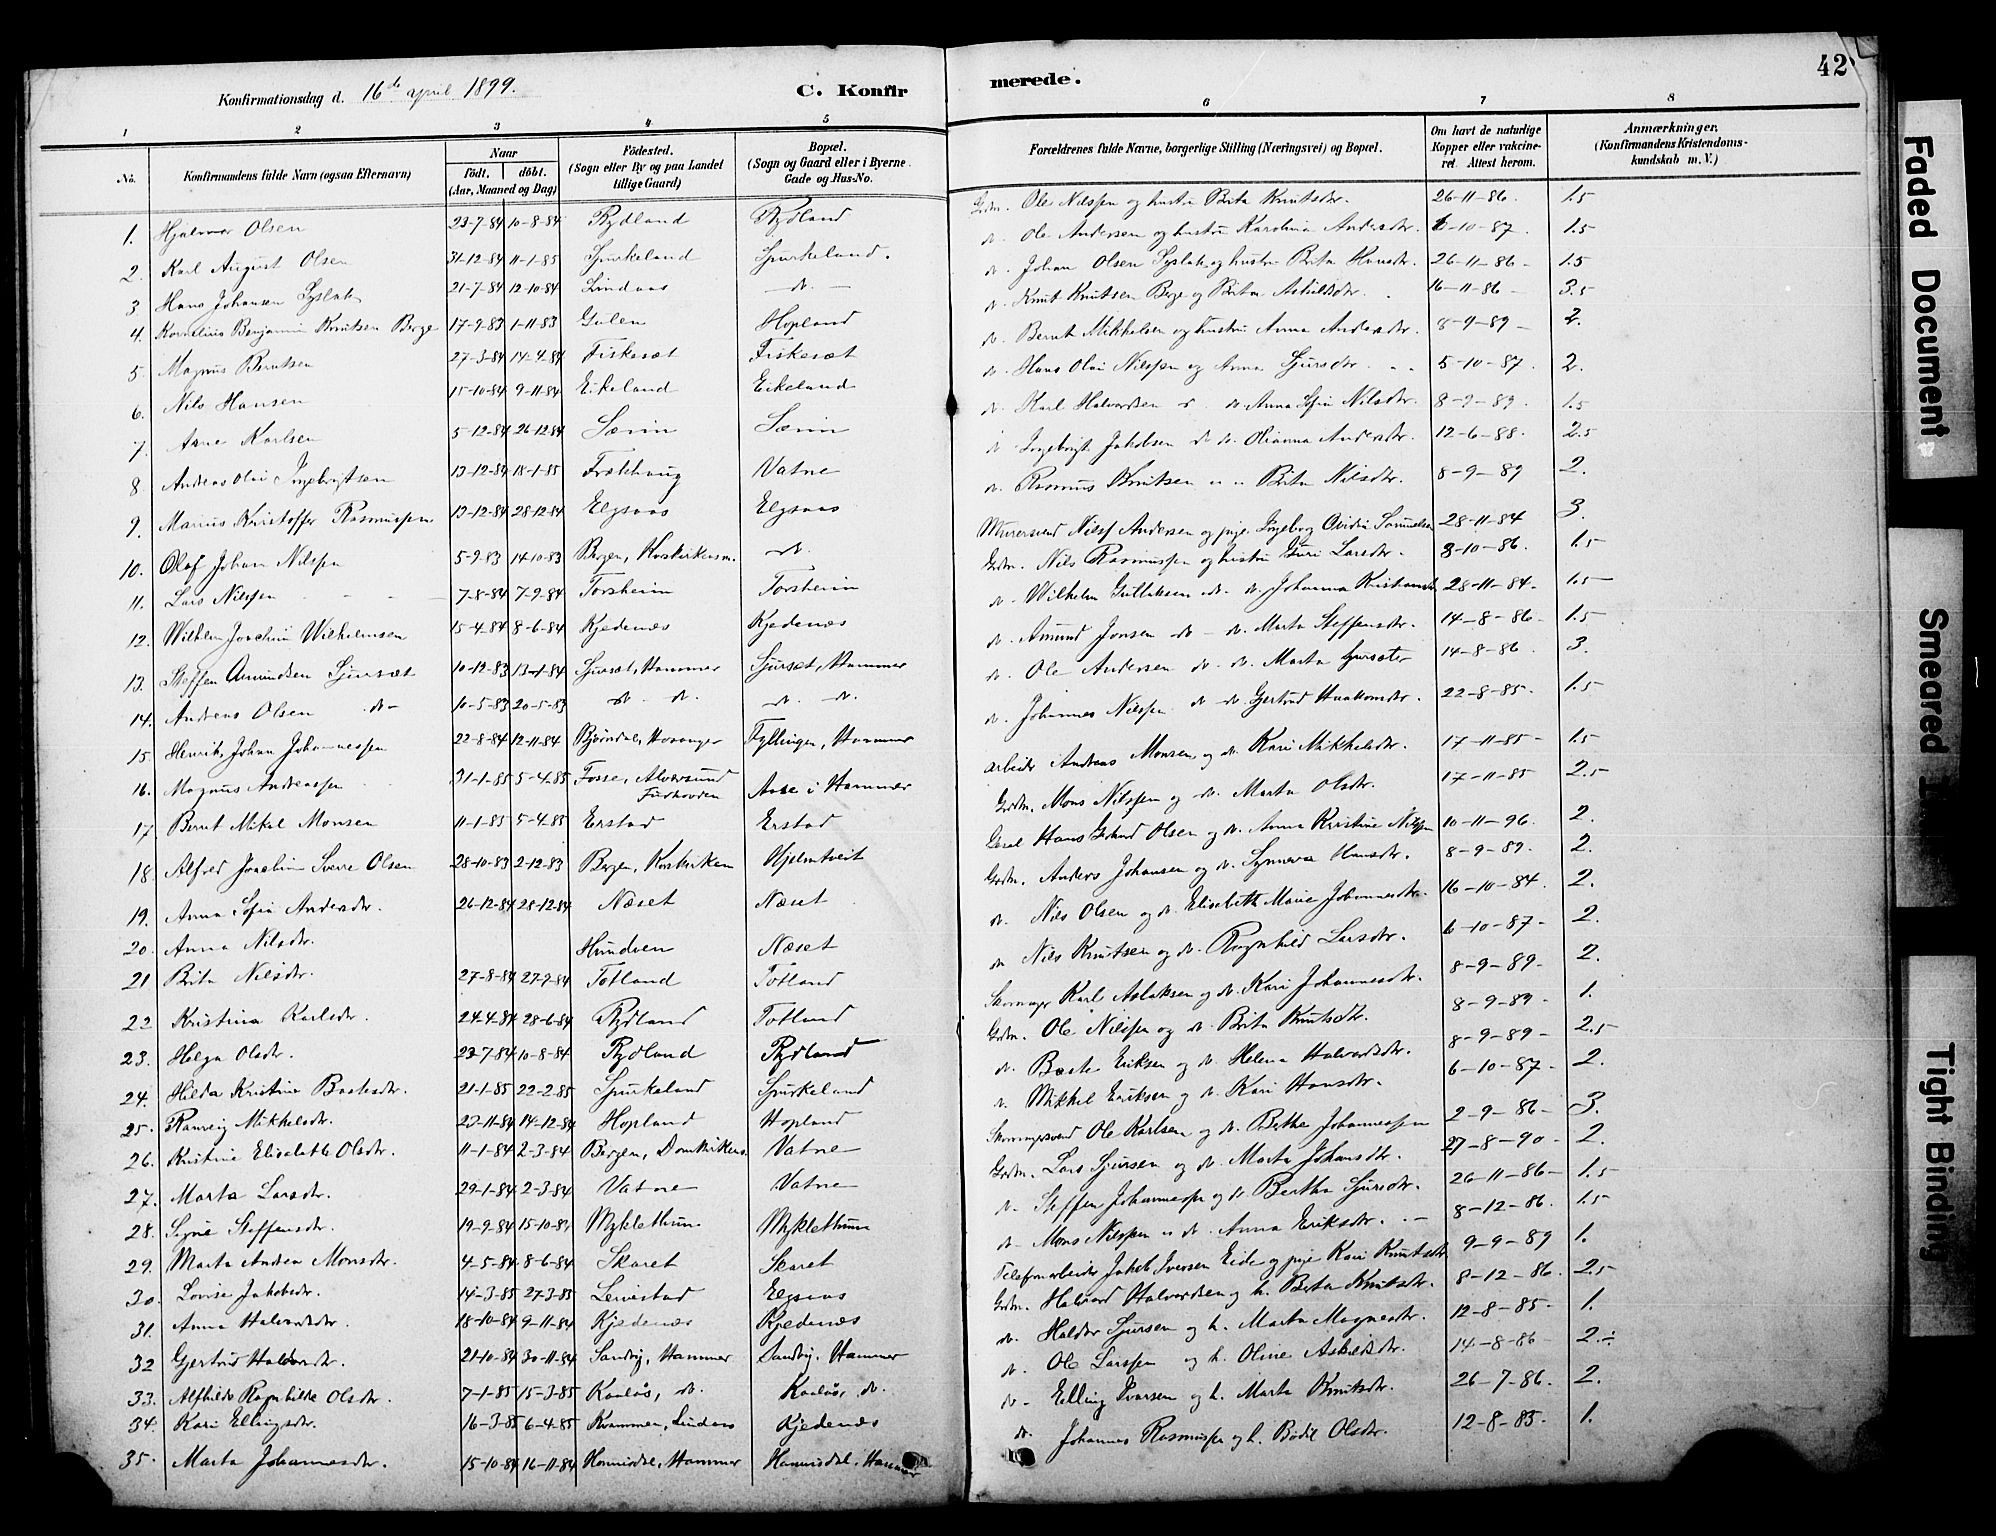 42
Konfirmationsdag d. 16de april 1899.
C. Konfir
merede.
1 2 3 4 5 6 7 8
No.
Konfirmandens fulde Navn (ogsaa Efternavn)
Naar
födt. döbt.
(Aar, Maaned og Dag)
Födested.
(Sogn eller By og paa Landet
tillige Gaard)
Bopæl.
(Sogn og Gaard eller i Byerne
Gade og Hus-No.
Forældrenes fulde Navne, borgerlige Stilling (Næringsvei) og Bopæl.
Om havt de naturlige
Kopper eller vakcine-
ret. Attest herom.
Anmærkninger.
(Konfirmandens Kristendoms-
kundskab m. V.)
1. Hjalmar Olsen 23-7-84 10-8-84 Rydland Rydland Grdm. Ole Nilssen og hustru Brita Knutsdtr. 26-11-86. 1.5
2. Karl August Olsen 31-12-84 11-1-85 Spurkeland Spurkeland. do. Ole Andersen og hustru Karolina Andersdtr. 6-10-87. 1.5
3 Hans Johansen Syslak 21-7-84 12-10-84 Lindaas — do. — do. Johan Olsen Syslak og hustru Brita Hansdtr. 26-11-86 - 1.5
4. Kornelius Benjamin Knutsen Berge 17-9-83 1-11-83 Gulen Hopland do. Knut Knutsen Berge og Brita Askildsdtr. 16-11-86 - 3.5
5. Magnus Berntsen 27-3-84 14-4-84 Fiskesæt Fiskesæt do. Bernt Mikkelsen og hustru Anna Andersdtr. 8-9-89 - 2.
6. Nils Hansen 15-10-84 9-11-84 Eikeland Eikeland do. Hans Olai Nilssen og Anna Sjursdtr. 5-10-87. 2.
7. Arne Karlsen 5-12-84 26-12-84 Særvin Særvin do. Karl Halvordsen do. Anna Sofia Nilsdtr. 8-9-89. 1.5
8. Andreas Olai Ingebrigtsen 13-12-84 18-1-85 Frækhaug Vatne do. Ingebrigt Jakobsen do. do. Olianna Andersdtr. 12-6-88. 2.5
9. Marius Kristoffer Rasmussen 13-12-84 28-12-84 Elgsaas Elgsaas do. Rasmus Knutsen Brita Nilsdtr. 8-9-89 2.
10. Olaf Johan Nilssen 5-9-83 14-10-83 Bergen, Korskirkens m. do. Murersvend Andersen og pige Ingeborg Samuelsen 28-11-84 3.
11. Lars Nilssen 7-8-84 7-9-84 Forsheim Forsheim Grdm. Nils Rasmussen og hustru Guri Larsdtr. 8-10-86. 1.5
12. Wilhelm Joachim Wilhelmsen 15-4-84 8-6-84 Kjedenæs Kjedenæs do. Wilhelm Gullaksen do. do. Johanna 28-11-84. 1.5
13. Steffen Amundsen Sjursæt 10-12-83 13-1-84 Sjursæt, Hammer Sjursæt, Hammer do. Amund Jonsen do. - do. Marta Steffensdtr. 14-8-86. 1.5
14. Andreas Olsen do- 10-5-83 20-5-83 do. do. do. do. do. Ole Andersen do. do. Marta 14-8-86. 3.
15. Henrik Johan Johannessen 22-8-84 12-11-84 Bjørndal, Hosanger Fyllingen, Hammer do. Johannes Nilssen do. do. Gjertrud Haakonsdtr. 22-8-85. 1.5
16. Magnus Andreassen 31-1-85 5-4-85 Fosse, Alversund Aase i Hammer arbeider Andreas Monsen og do. Kari Mikkelsdtr. 17-11-85 - 1.5
17 Bernt Mikal Monsen 11-1-85 5-4-85 Erstad Erstad Grdm. Mons Nilssen og do. Marta Olsdtr. 17-11-85 2.5
18. Alfred Joachim Sverre Olsen 28-10-83 2-12-83 Bergen, Korskirken Hjelmtveit Hans Olsen og do. Anna Kristine Nilssen 10-11-96. 2.
19. Anna Sofia Andersdtr. 26-12-84 28-12-84 Næset Næset Grdm. Anders Johansen og do. Synneva Hansdtr. 8-9-89. 2.
20. Anna Nilsdtr. Hundven Næset do. Nils Olsen og do. Elisabeth Marie Johannesdtr. 16-10-84. 2.
21 Brita Nilsdtr. 27-8-84 27-9-84 Totland Totland do. Nils Knutsen og do. Ragnhild Larsdtr. 6-10-87 - 2.
22 Kristina Karlsdtr. 24-4-84 28-6-84 Rydland Totland Skomager Karl Aslaksen og do. Kari Johannesdtr. 8-9-89. 2.
23. Helga Olsdtr. 23-7-84 10-8-84 Rydland Rydland Grdm. Ole Nilssen og do. Brita Knutsdtr. 8-9-89 1.
24. Hilda Kristine Bastesdtr. 21-1-85 22-2-85 Spurkeland Spurkeland do. Baste Eriksen og do. Helena Halvordsdtr. 8-9-89 - 2.5
25. Ranveig Mikkelsdtr. 23-11-84 14-12-84 Hopland Hopland do. Mikkel Eriksen og do. Kari Hansdtr. 6-10-87. 2.
26. Kristine Elisabeth Olsdtr. 11-1-84 2-3-84 Bergen, Domkirkens Vatne Skomagersvend Ole Karlsen og do. Berthe Johannessen 2-9-86 - 3.
27. Marta Larsdtr. 29-1-84 2-3-84 Vatne Vatne Grdm. Lars Sjursen og do. Marta Johansdtr. 27-8-90 - 2.
28. Signe Steffensdtr. 19-9-84 15-10-84 Myklethun Myklethun do. Steffen Johannessen og do. Bertha Sjursdtr. 26-11-86 - 1.5
29. Marta Andrea Monsdtr. 4-5-84 8-6-84 Skaret Skaret do. Mons Nilssen do. Anna Eriksdtr. 8-12-86. 1.5
30. Lovise Jakobsdtr. 14-3-85 27-3-85 Leirestad Elgsaas Telefonarbeider Jakob Iversen Eide og pige Kari Knutsdtr. 9-9-89 1.
31. Anna Halvordsdtr. 18-10-84 9-11-84 Kjedenæs Kjedenæs Grdm. Halvord Halvordsen og h. Brita Knutsdtr. 8-12-86. 2.5
32 Gjertrud Haldorsdtr. 21-10-84 30-11-84 Sandvig, Hammer Sandvig, Hammer do. Haldor Sjursen og h. Marta Magnesdtr. 12-8-85. 1.
33. Alfhilde Ragnhilda Olsdtr. 7-1-85 15-3-85 Kaalås, do. Kaalås, do. do. Ole Larssen og h. Oline Askildsdtr. 14-8-86 2.÷
34. Kari Ellingsdtr. 16-3-85 6-4-85 Kvammen, Lindaas Kjedenæs do. Elling Ivarsen og h. Marta Knutsdtr. 26-7-86. 2.
35. Marta Johannesdtr. 15-10-84 16-11-84 Hannisdal, Hammer Hannisdal, Hammer do. Johannes Rasmussen og h. Bodil Olsdtr. 12-8-85. 1.
Faded Document
Smeared
Tight Binding